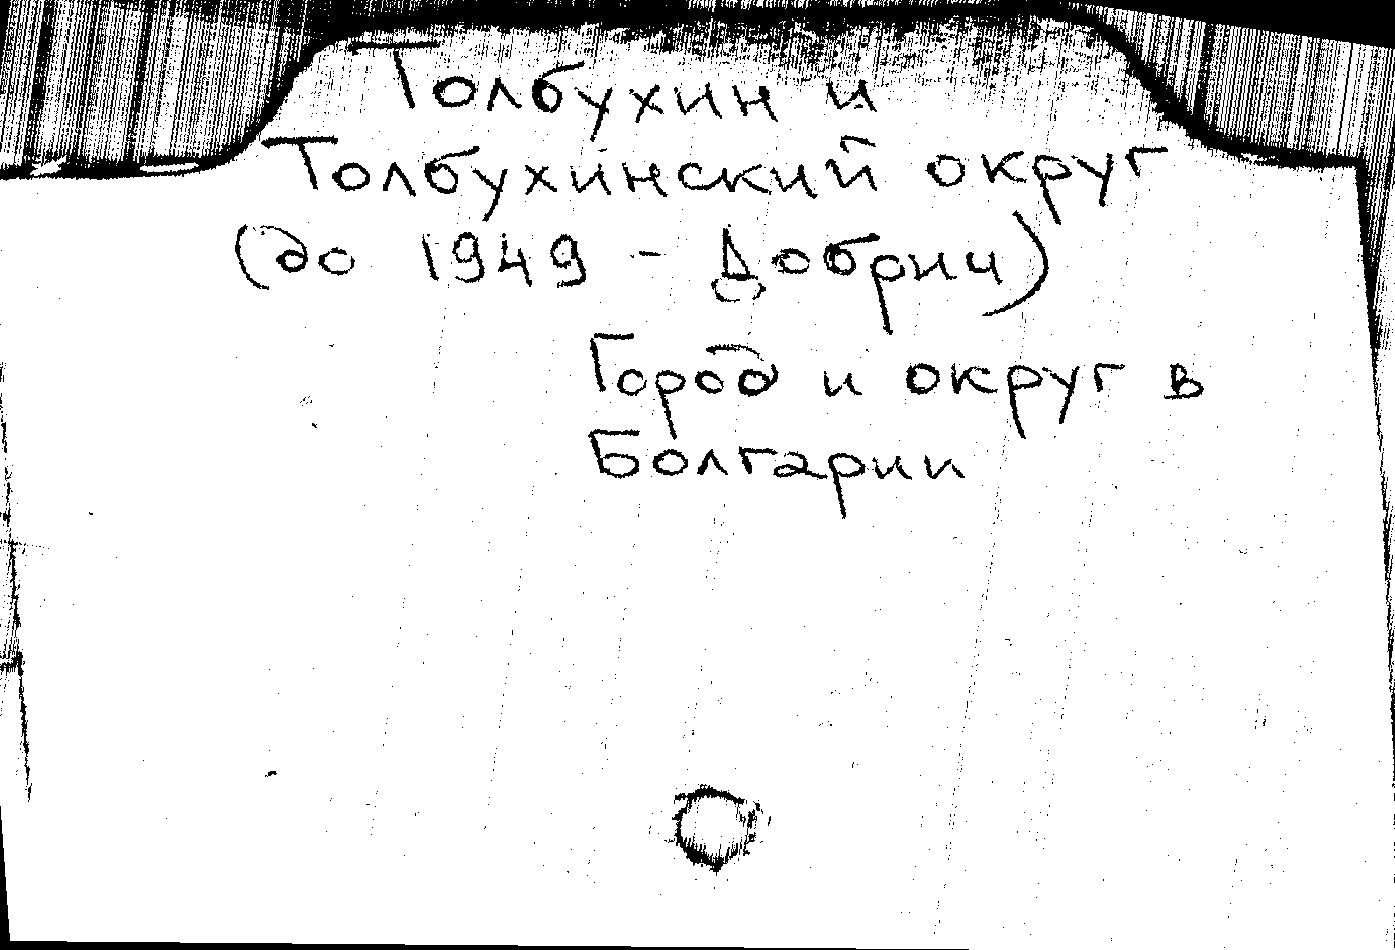 Толбухин и
Толбухинский округ
(до 1949 - Добрич)
Город и округ в
Болгарии